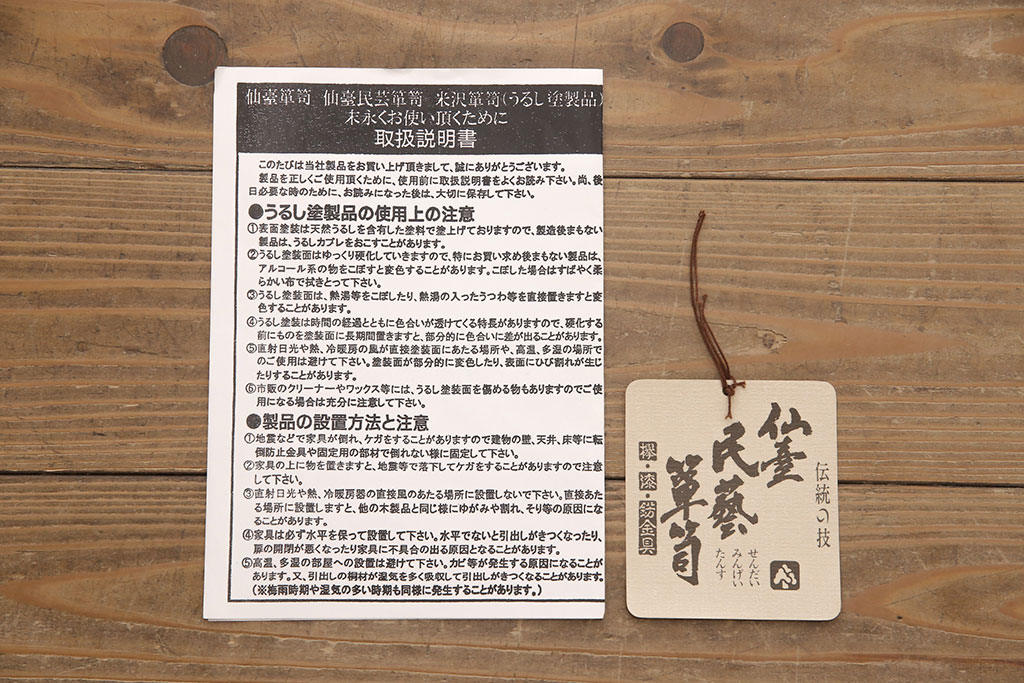 仙臺箪笥 仙臺民芸箪笥 米沢箪笥(うるし塗製品)
末永くお使い頂くために
取扱説明書
このたびは当社製品をお買い上げ頂きまして、誠にありがとうございます。
製品を正しくご使用頂くために、使用前に取扱説明書をよくお読み下さい。尚、後
日必要な時のために、お読みになった後は、大切に保存して下さい。
●うるし塗製品の使用上の注意
①表面塗装は天然うるしを含有した塗料で塗上げておりますので、製造後まもない
製品は、うるしカブレをおこすことがあります。
②うるし塗装面はゆっくり硬化していきますので、特にお買い求め後まもない製品は、
アルコール系の物をこぼすと変色することがあります。こぼした場合はすばやく柔
らかい布で拭きとって下さい。
③うるし塗装面は、熱湯等をこぼしたり、熱湯の入ったうつわ等を直接置きますと変
色することがあります。
④うるし塗装は時間の経過とともに色合いが透けてくる特長がありますので、硬化する
前にものを塗装面に長期間置きますと、部分的に色合いに差が出ることがあります。
⑤直射日光や熱、冷暖房の風が直接塗装面にあたる場所や、高温、多湿の場所で
のご使用は避けて下さい。塗装面が部分的に変色したり、表面にひび割れが生じ
たりすることがあります。
⑥市販のクリーナーやワックス等には、うるし塗装面を傷める物もありますのでご使
用になる場合は充分に注意して下さい。
●製品の設置方法と注意
①地震などで家具が倒れ、ケガをすることがありますので建物の壁、天井、床等に転
倒防止金具や固定用の部材で倒れない様に固定して下さい。
②家具の上に物を置きますと、地震等で落下してケガをすることがありますので注意
して下さい。
③直射日光や熱、冷暖房器の直接風のあたる場所に設置しないで下さい。直接あた
る場所に設置しますと、他の木製品と同じ様にゆがみや割れ、そり等の原因にな
ることがあります。
④家具は必ず水平を保って設置して下さい。水平でないと引出しがきつくなったり、
扉の開閉が悪くなったり家具に不具合の出る原因となることがあります。
⑤高温、多湿の部屋への設置は避けて下さい。カビ等が発生する原因になることが
あります。又、引出しの桐材が湿気を多く吸収して引出しがきつくなることがあります。
(※梅雨時期や湿気の多い時期も同様に発生することがあります。)
伝統の技
仙臺
民藝
箪笥
せんだい
みんげい
たんす
欅・漆・錺金具